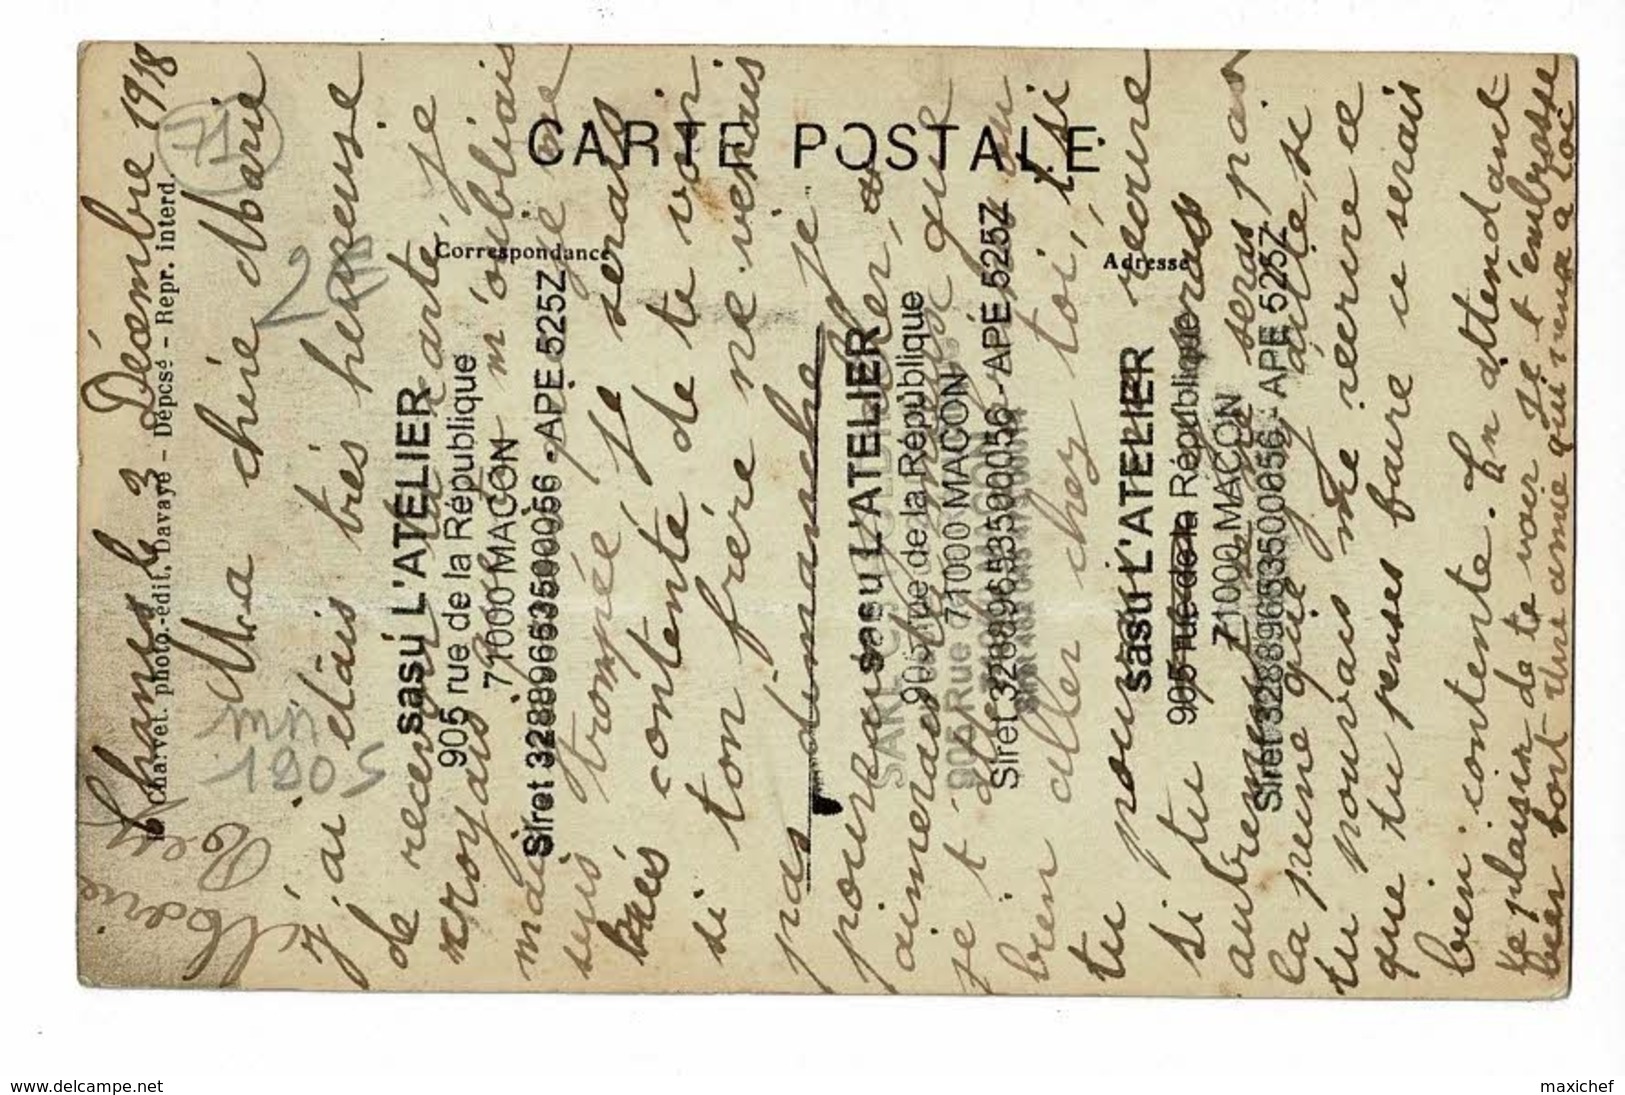 CARTE POSTALE
Correspondance
Adresse
16 Charvet. photo.-édit, Davayé - Déposé - Repr. interd.
Chanes le 3 Décembre 1918
Ma chère Marie
j'ai étais très heureuse
de recevoir ta carte, je
croyais que tu m'oubliais
mais je me
suis trompée je serais
très contente de te voir
si ton frère ne venais
pas dimanche je
pourrais
aimerais que
je t'
bien aller chez toi, si
tu pourrais m'écrire
si tu pouras
autrement ne seras pas
la peine qu'il y aille, si
tu pouvais me recrire ce
que tu penses faire ce serais
bien contente. En attendant
le plaisir de te voir Je t'embrasse
bien fort Une amie qui pense a toi
Marie Rey
71
mn
1905
sasu L'ATELIER
905 rue de la République
71000 MACON
Siret 32889653500056 - APE 525Z
sasu L'ATELIER
905 rue de la République
71000 MACON
Siret 32889653500056 - APE 525Z
SARL
905 Rue
sasu L'ATELIER
905 rue de la République
71000 MACON
Siret 32889653500056 - APE 525Z
www.delcampe.net
maxichef